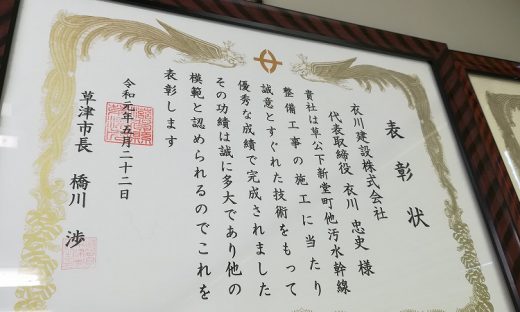 表彰状
衣川建設株式会社
代表取締役 衣川 忠史 様
貴社は草公下新堂町他汚水幹線
整備工事の施工に当たり
誠意とすぐれた技術をもって
優秀な成績で完成されました
その功績は誠に多大であり他の
模範と認められるのでこれを
表彰します
令和元年五月二十二日
草津市長 橋川 渉